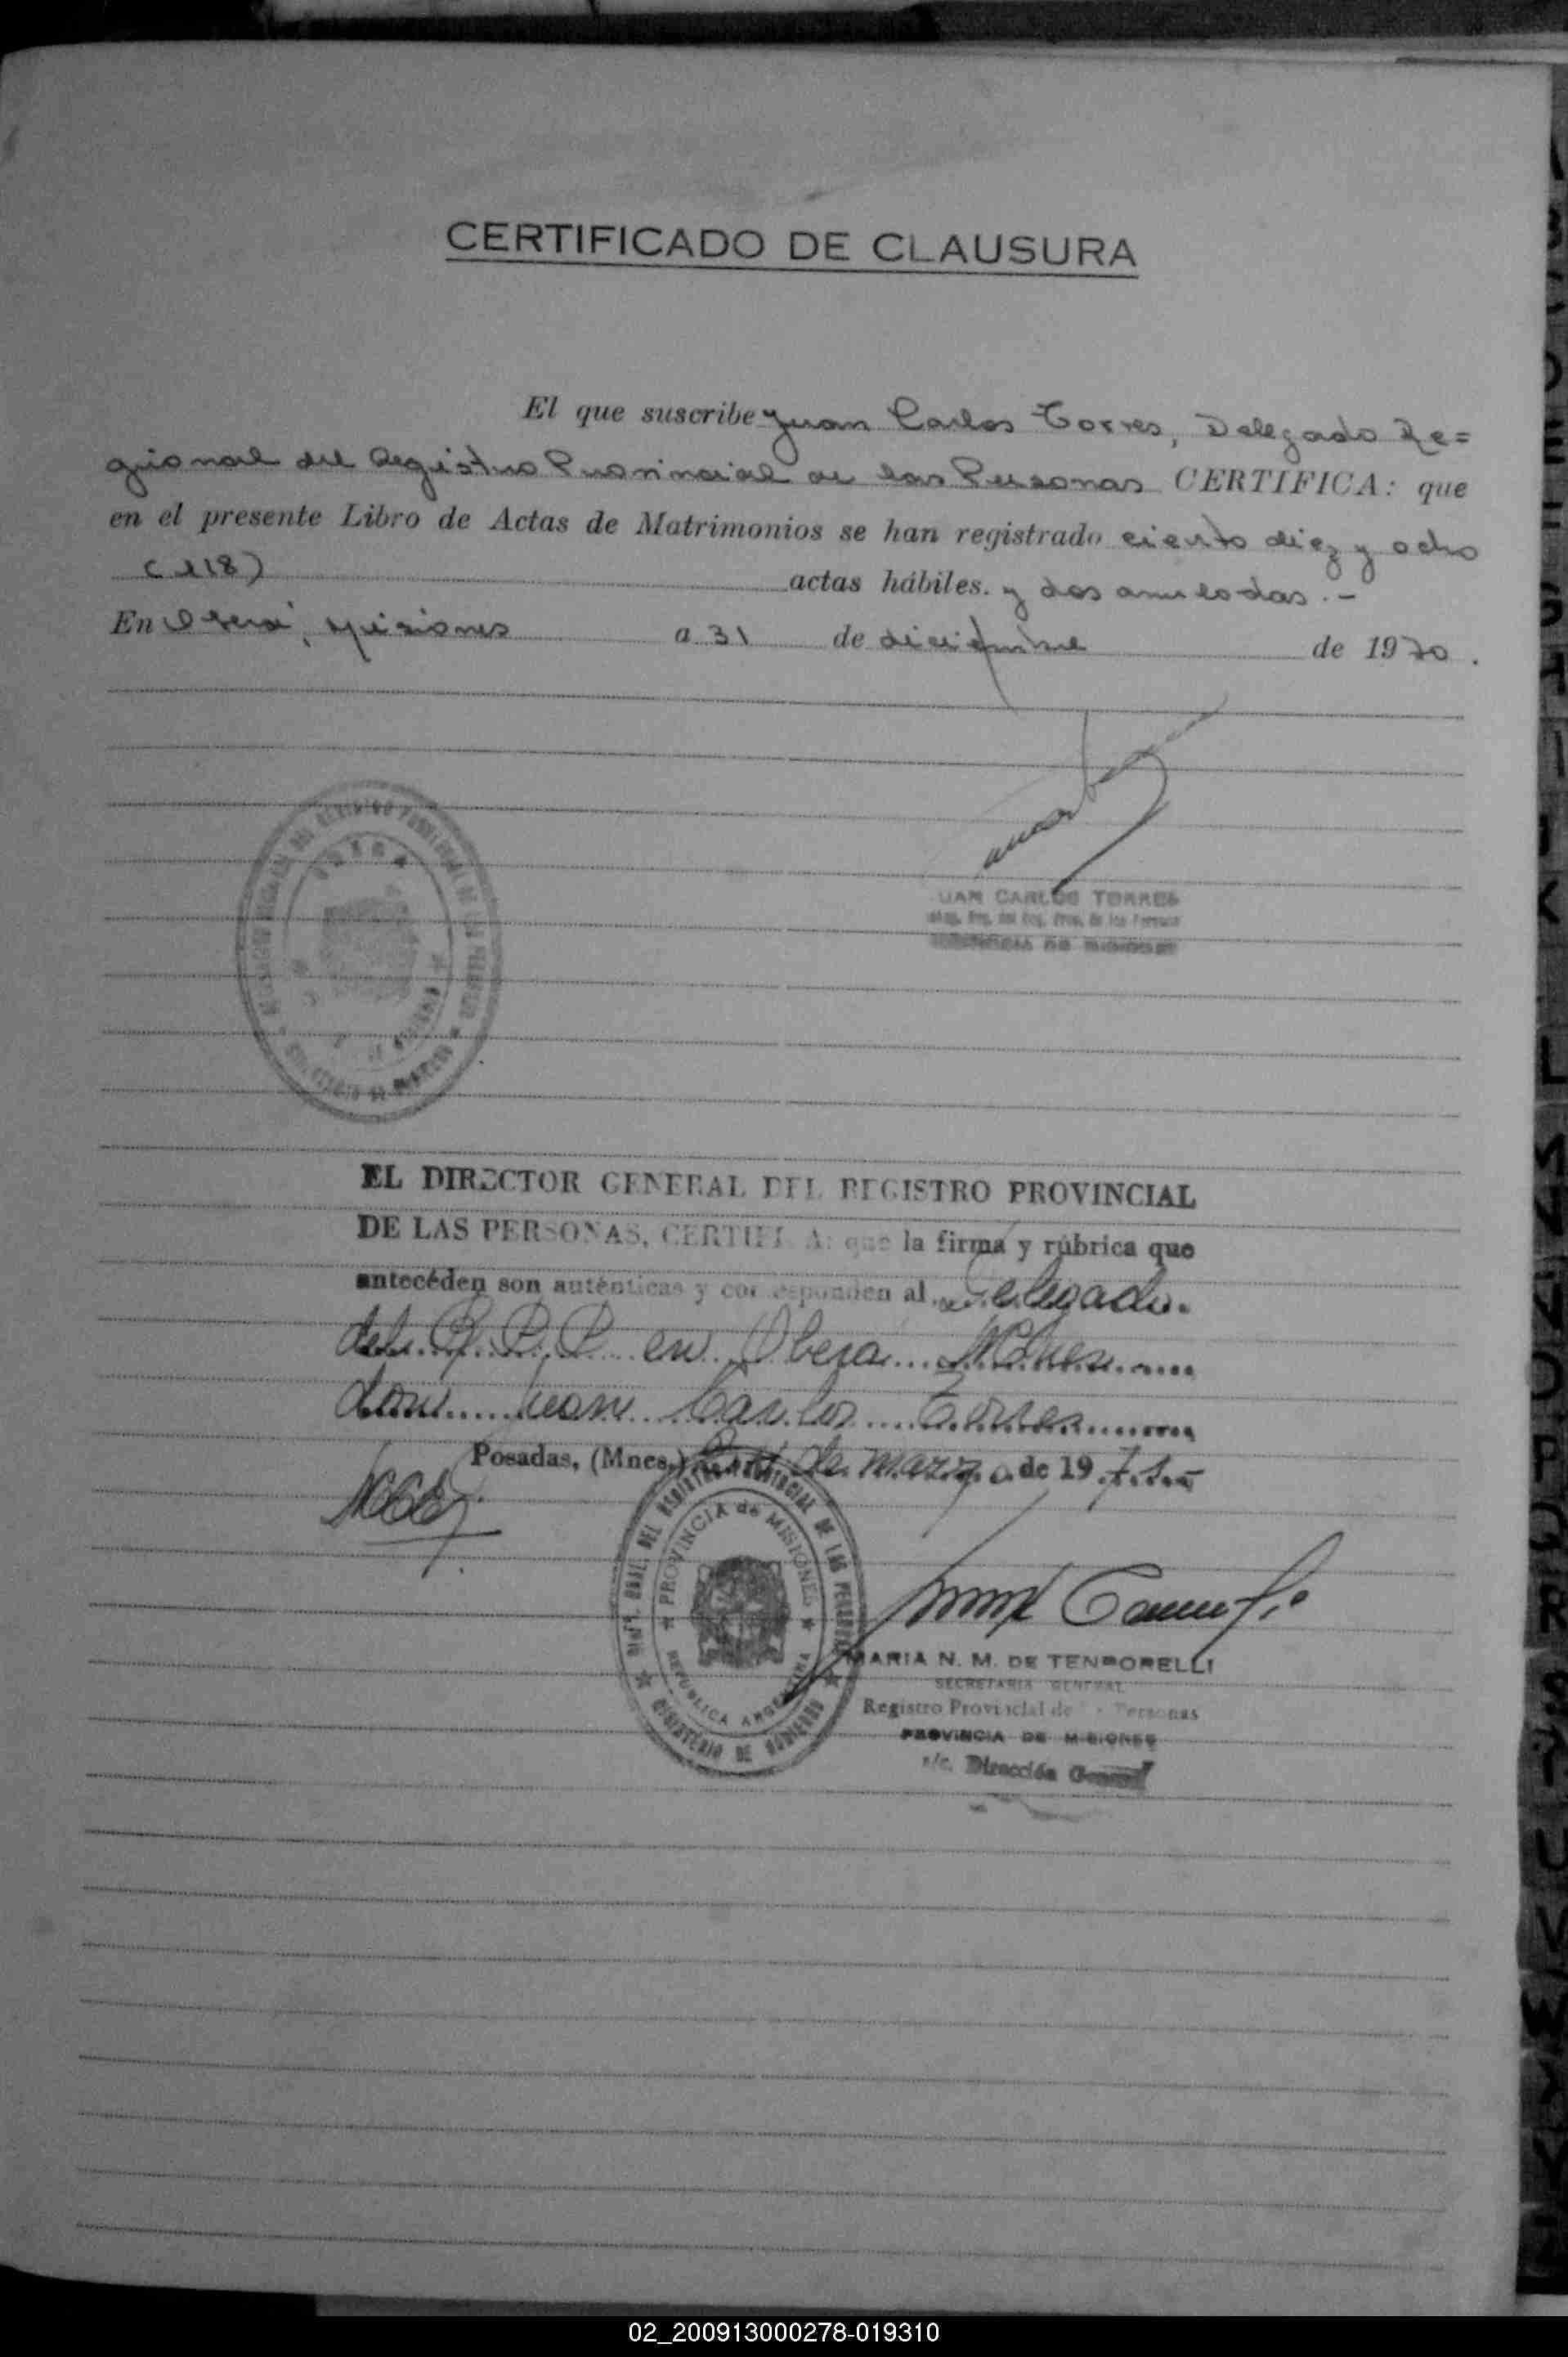 CERTIFICADO DE CLAUSURA
El que suscribe Juan Carlos Torres, Delegado Re=
gional del Registro Provincial de las Personas CERTIFICA: que
en el presente Libro de Actas de Matrimonios se han registrado ciento diez y ocho
(118) actas hábiles. y dos anuladas.-
En Oberá, Misiones a 31 de diciembre de 1970.
JUAN CARLOS TORRES
EL DIRECTOR GENERAL DEL REGISTRO PROVINCIAL
DE LAS PERSONAS, CERTIFICA: que la firma y rúbrica que
antecéden son auténticas y corresponden al Delegado
del R. P. P. en Oberá Mnes
don Juan Carlos Torres
Posadas, (Mnes.) de marzo de 1971
DIR. GRAL. DEL REGISTRO PROVINCIAL DE LAS PERSONAS
PROVINCIA de MISIONES
REPUBLICA ARGENTINA
MINISTERIO DE GOBIERNO
MARIA N. M. DE TEMPORELLI
SECRETARIA GENERAL
Registro Provincial de Personas
PROVINCIA DE MISIONES
a/c. Dirección General
02_200913000278-019310